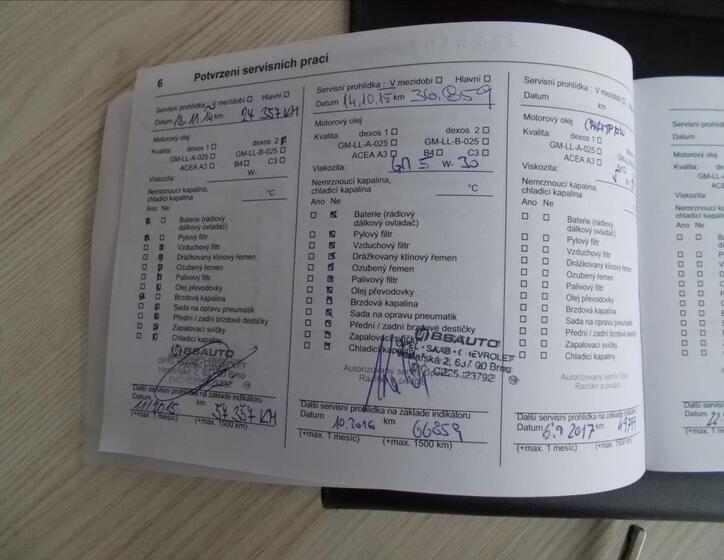 6 Potvrzení servisních prací
Servisní prohlídka : V mezidobí Hlavní
Datum 13.11.14 km 24 357 KM
Motorový olej
Kvalita: dexos 1 dexos 2
GM-LL-A-025 GM-LL-B-025
ACEA A3 B4 C3
Viskozita: W-
Nemrznoucí kapalina,
chladicí kapalina °C
Ano Ne
Baterie (rádiový
dálkový ovladač)
Pylový filtr
Vzduchový filtr
Drážkovaný klínový řemen
Ozubený řemen
Palivový filtr
Olej převodovky
Brzdová kapalina
Sada na opravu pneumatik
Přední / zadní brzdové destičky
Zapalovací svíčky
Chladicí kapaliny
BSAUTO
Další servisní prohlídka na základe indikátoru
Datum 11/2015 km 54 357 KM
(+max. 1 měsíc) (+max. 1500 km)
Servisní prohlídka : V mezidobí Hlavní
Datum 14.10.15 km 36.859
Motorový olej
Kvalita: dexos 1 dexos 2
GM-LL-A-025 GM-LL-B-025
ACEA A3 B4 C3
Viskozita: W- 30
Nemrznoucí kapalina,
chladicí kapalina °C
Ano Ne
Baterie (rádiový
dálkový ovladač)
Pylový filtr
Vzduchový filtr
Drážkovaný klínový řemen
Ozubený řemen
Palivový filtr
Olej převodovky
Brzdová kapalina
Sada na opravu pneumatik
Přední / zadní brzdové destičky
Zapalovací svíčky
Chladicí kapaliny
BSAUTO
OPEL - SAAB - CHEVROLET
637 00 Brno
Autorizovaný servis Opel
Další servisní prohlídka na základe indikátoru
Datum 10.2016 km 66859
(+max. 1 měsíc) (+max. 1500 km)
Servisní prohlídka : V mezidobí
Datum km
Motorový olej
Kvalita: dexos 1
GM-LL-A-025
ACEA A3 B4
Viskozita:
Nemrznoucí kapalina,
chladicí kapalina
Ano Ne
Baterie (rádiový
dálkový ovladač)
Pylový filtr
Vzduchový filtr
Drážkovaný klínový řemen
Ozubený řemen
Palivový filtr
Olej převodovky
Brzdová kapalina
Sada na opravu pneumatik
Přední / zadní brzdové destičky
Zapalovací svíčky
Chladicí kapaliny
Autorizovaný servis Opel
Razítko a podpis
Další servisní prohlídka na základe indikátoru
Datum 6.9.2017 km
(+max. 1 měsíc) (+max. 1500 km)
Servisní
Datum
Motorový olej
Kvalita:
Viskozita:
Ano Ne
Datum
(+max. 1